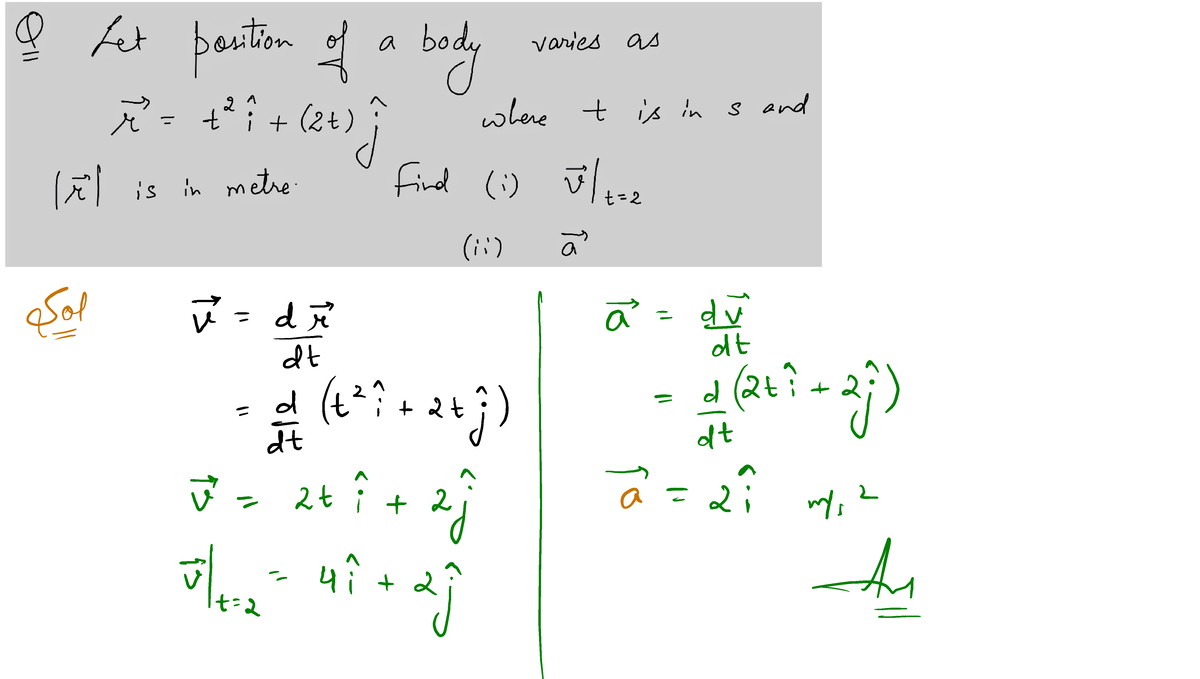 Q Let position of a body varies as
r⃗ = t² î + (2t) ĵ where t is in s and
|r⃗| is in metre. Find (i) v⃗|t=2
(ii) a⃗
Sol
v⃗ = dr⃗/dt
= d/dt (t² î + 2t ĵ)
v⃗ = 2t î + 2ĵ
v⃗|t=2 = 4î + 2ĵ
a⃗ = dv⃗/dt
= d/dt (2t î + 2ĵ)
a⃗ = 2î m/s²
Ans